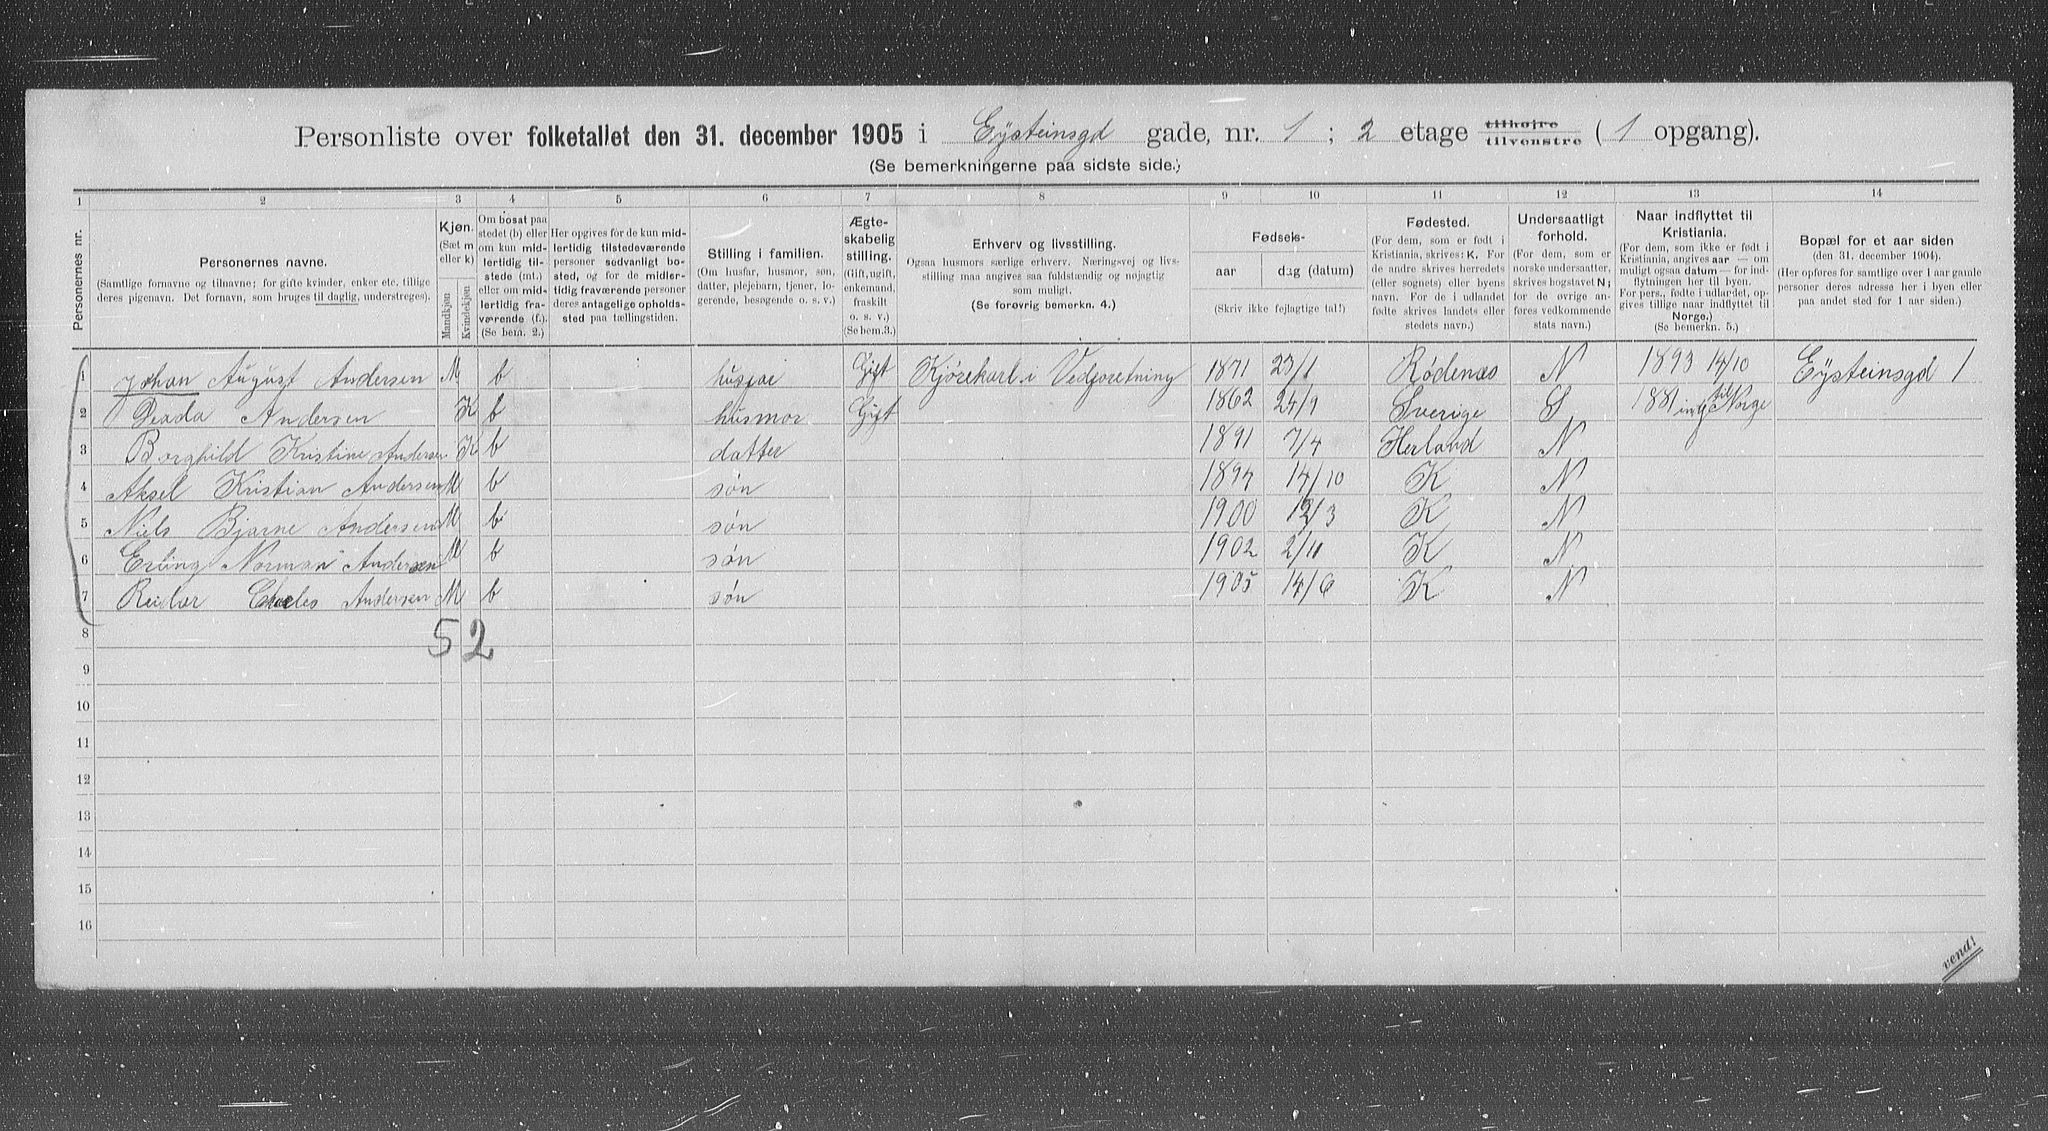 Personliste over folketallet den 31. december 1905 i Eysteinsgd gade, nr. 1 ; 2 etage tilhøjre tilvenstre ( 1 opgang).
(Se bemerkningerne paa sidste side.)
1 2 3 4 5 6 7 8 9 10 11 12 13 14
Personernes nr.
Personernes navne.
(Samtlige fornavne og tilnavne; for gifte kvinder, enker etc. tillige
deres pigenavn. Det fornavn, som bruges til daglig, understreges).
Kjøn.
(Sæt m
eller k)
Mandkjøn
Kvindekjøn
Om bosat paa
stedet (b) eller
om kun mid-
lertidig til-
stede (mt.)
eller om mid-
lertidig fra-
værende (f.).
(Se bem. 2.)
Her opgives for de kun mid-
lertidig tilstedeværende
personer sedvanligt bo-
sted, og for de midler-
tidig fraværende personer
deres antagelige opholds-
sted paa tællingstiden.
Stilling i familien.
(Om husfar, husmor, søn,
datter, plejebarn, tjener, lo-
gerende, besøgende o. s. v.)
Ægte-
skabelig
stilling.
(Gift, ugift,
enkemand,
fraskilt
o. s. v.)
(Se bem.3.)
Erhverv og livsstilling.
Ogsaa husmors særlige erhverv. Næringsvej og livs-
stilling maa angives saa fuldstændig og nøjagtig
som muligt.
(Se forøvrig bemerkn. 4.)
Fødsels-
aar dag (datum)
(Skriv ikke fejlagtige tal!)
Fødested.
(For dem, som er født i
Kristiania, skrives: K. For
de andre skrives herredets
(eller sognets) eller byens
navn. For de i udlandet
fødte skrives landets eller
stedets navn.)
Undersaatligt
forhold.
(For dem, som er
norske undersaatter,
skrives bogstavet N;
for de øvrige an-
føres vedkommende
stats navn.)
Naar indflyttet til
Kristiania.
(For dem, som ikke er født i
Kristiania, angives aar — om
muligt ogsaa datum — for ind-
flytningen her til byen.
For pers., fødte i udlandet, op-
gives tillige naar indflyttet til
Norge.)
(Se bemerkn. 5.)
Bopæl for et aar siden
(den 31. december 1904).
(Her opføres for samtlige over 1 aar gamle
personer deres adresse her i byen eller
paa andet sted for 1 aar siden.)
1 Johan August Andersen M b husfar Gift Kjørekarl i Vedforetning 1871 23/1 Rødenæs N 1893 14/10 Eysteinsgd 1
2 Andersen K b husmor Gift 1862 24/9 Sverige S 1881 indf til Norge
3 Borghild Kristine Andersen K b datter 1891 7/4 Herland N
4 Aksel Kristian Andersen M b søn 1894 14/10 K N
5 Niels Bjarne Andersen M b søn 1900 12/3 K N
6 Erling Norman Andersen M b søn 1902 2/11 K N
7 Reidar Charles Andersen M b søn 1905 14/6 K N
8 5 2
9
10
11
12
13
14
15
16
vend!